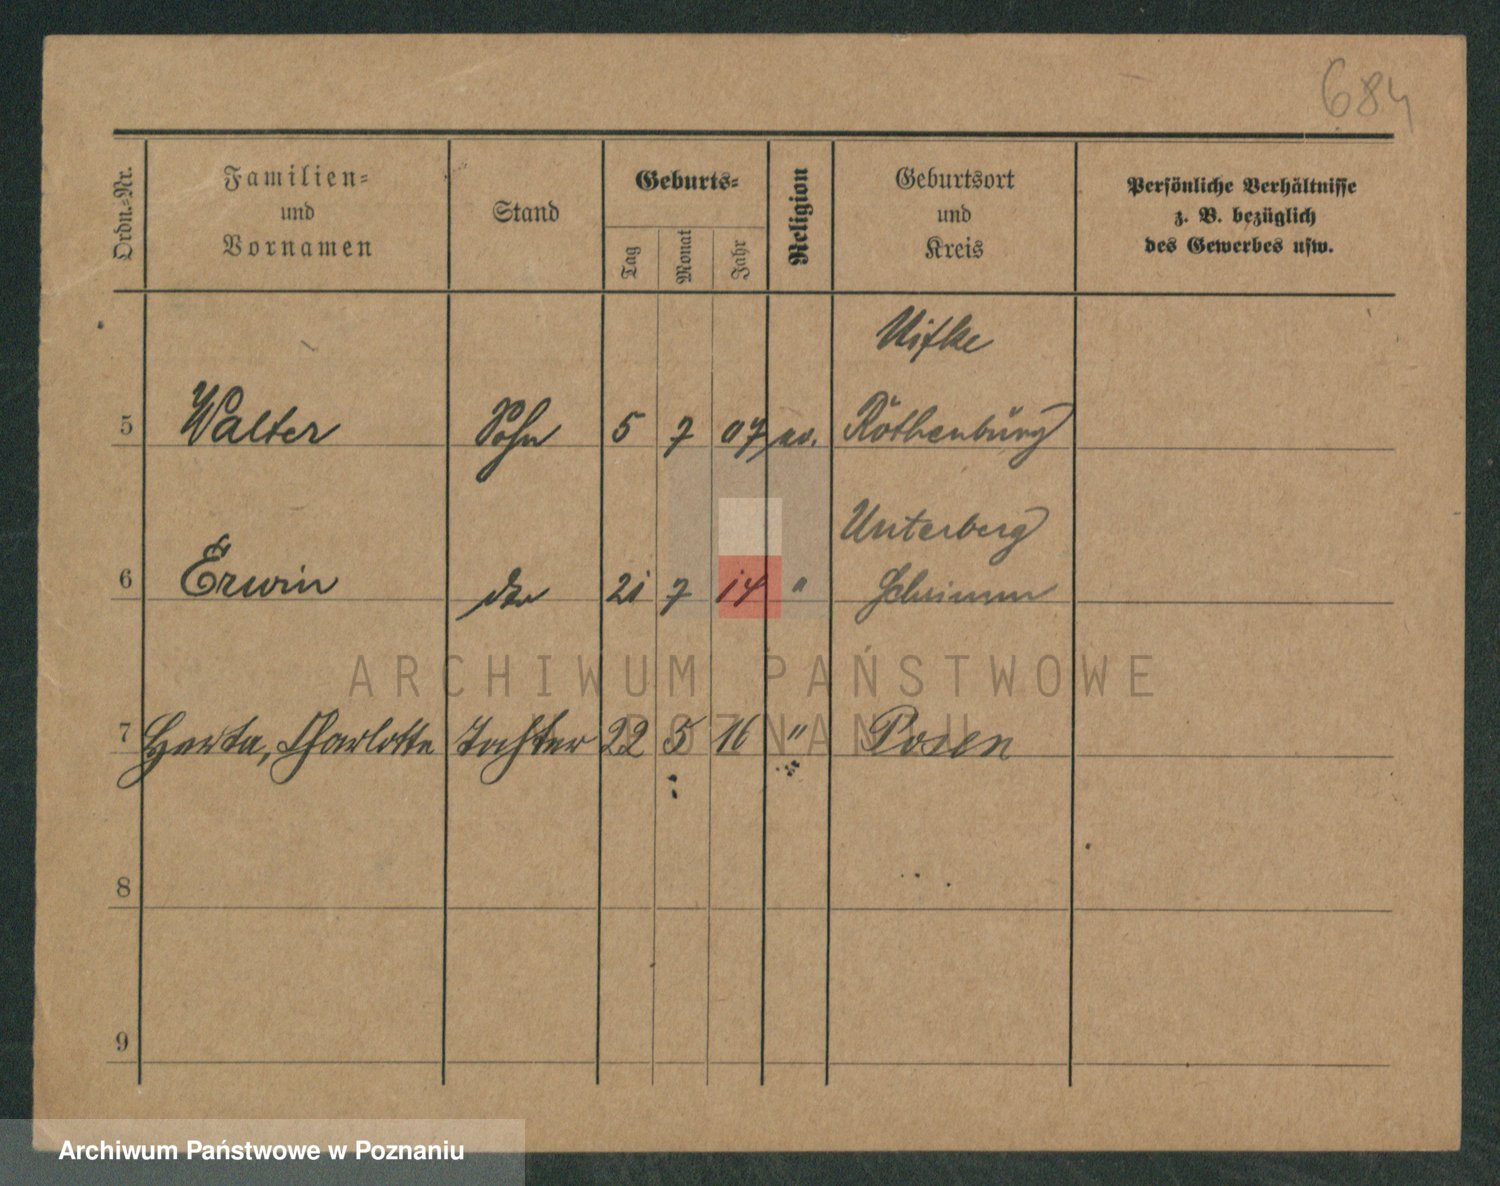 684
Ordn.-Nr.
Familien-
und
Vornamen
Stand
Geburts-
Tag
Monat
Jahr
Religion
Geburtsort
und
Kreis
Persönliche Verhältnisse
z. B. bezüglich
des Gewerbes usw.
5 Walter Sohn 5 7 07 ev. Rothenburg
Unterberg
6 Erwin dto 21 7 14 " Schrimm
ARCHIWUM PAŃSTWOWE
W POZNANIU
7 Herta, Charlotte Tochter 22 5 16 " Posen
8
9
Archiwum Państwowe w Poznaniu